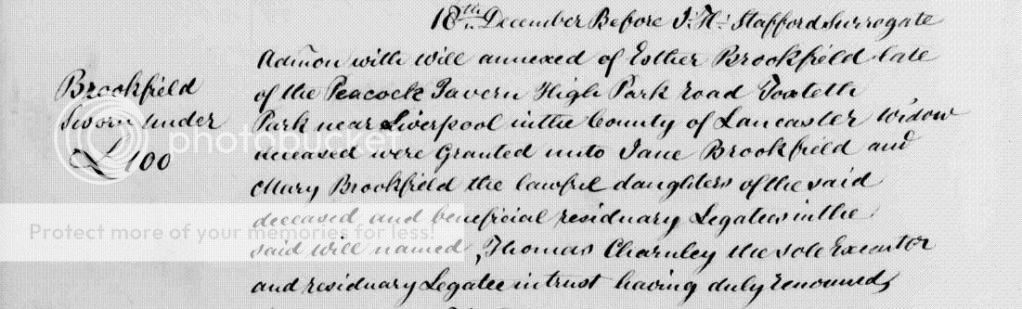 18th December Before J: H: Stafford Surrogate
Admon with Will annexed of Esther Brookfield late
of the Peacock Tavern High Park road Toxteth
Park near Liverpool in the County of Lancaster Widow
deceased were Granted unto Jane Brookfield and
Mary Brookfield the lawful daughters of the said
deceased and beneficial residuary Legatees in the
said Will named, Thomas Charnley the sole Executor
and residuary Legatee in trust having duly renounced,
Brookfield
Sworn under
£100
photobucket
Protect more of your memories for less!